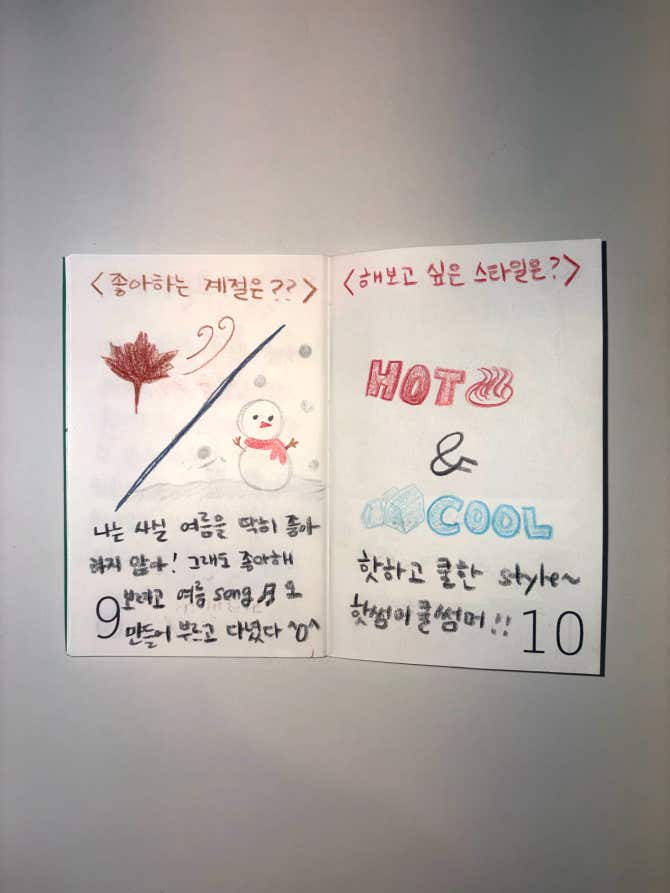 <좋아하는 계절은??>
나는 사실 여름을 딱히 좋아
하지 않아! 그래도 좋아해
보려고 여름 song♬ 도
만들어 부르고 다녔다 ^0^
9
<해보고 싶은 스타일은?>
HOT
&
COOL
핫하고 쿨한 style~
핫썸이쿨썸머!!
10